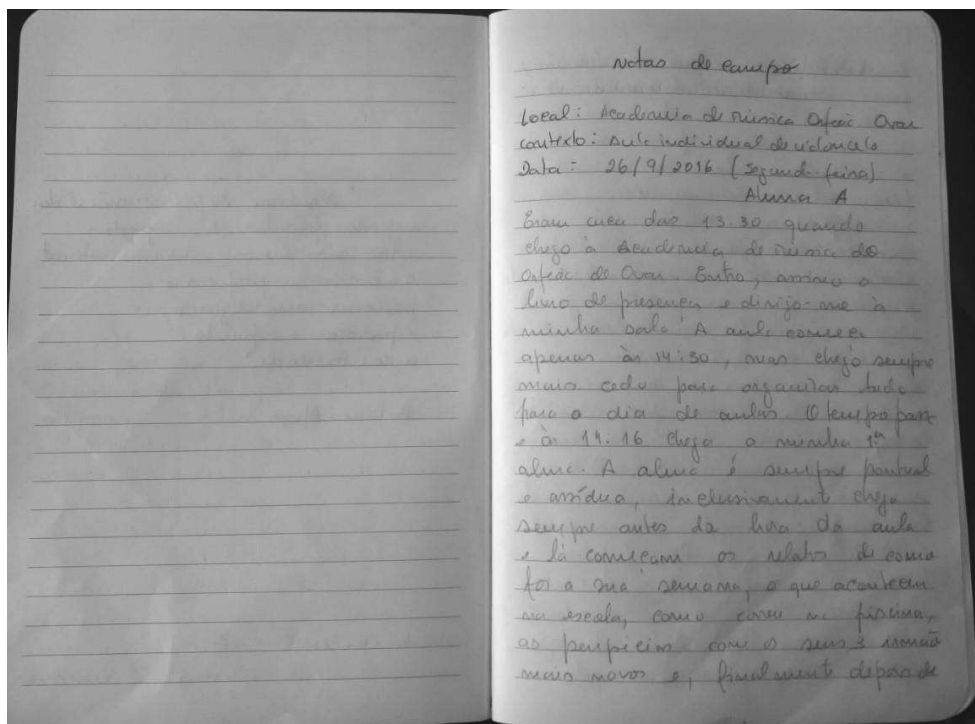 Notas de campo
Local: Academia de Música Orfeão Ovar
contexto: Aula individual de violoncelo
Data: 26/9/2016 (Segunda-feira)
Aluna A
Eram cerca das 13.30 quando
chego à Academia de Música do
Orfeão de Ovar. Entro, assino o
livro de presença e dirijo-me à
minha sala. A aula começa
apenas às 14:30, mas chego sempre
mais cedo para organizar tudo
para o dia de aulas. O tempo passa
e às 14:16 chega a minha 1ª
aluna. A aluna é sempre pontual
e assídua, inclusivamente chega
sempre antes da hora da aula
e lá começam os relatos de como
foi a sua semana, o que aconteceu
na escola, como correu na piscina,
as peripécias com os seus 3 irmãos
mais novos e, finalmente depois de